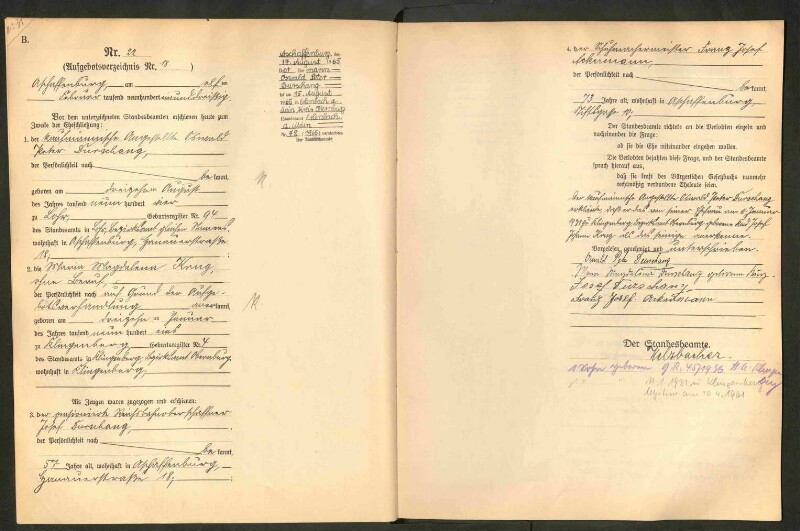 B.
Nr. 22
(Aufgebotsverzeichnis Nr. )
Aschaffenburg, am elf-
Februar tausend neunhundert einunddreißig.
Vor dem unterzeichneten Standesbeamten erschienen heute zum
Zwecke der Eheschließung:
1. der kaufmännische Angestellte Oswald
Peter Durschang,
der Persönlichkeit nach
be kannt,
geboren am dreizehn August
des Jahres tausend neun hundert vier
zu Lohr, Geburtsregister Nr. 94
des Standesamts in
wohnhaft in Aschaffenburg, Hanauerstraße
18;
2. die Maria Magdalena Krug,
ohne Beruf,
der Persönlichkeit nach auf Grund der Aufge-
botsverhandlung anerkannt,
geboren am dreizehn Januar
des Jahres tausend neun hundert
zu Klingenberg, Geburtsregister Nr. 4
des Standesamts in Klingenberg, Bezirksamt Obernburg,
wohnhaft in Klingenberg,
Als Zeugen waren zugezogen und erschienen:
3. der pensionierte Reichsbahnoberschaffner
Josef Durschang,
der Persönlichkeit nach
be kannt,
57 Jahre alt, wohnhaft in Aschaffenburg,
Hanauerstraße 18;
Aschaffenburg, den
17. August 1965
Der Ehemann
Oswald Peter
Durschang
ist am 15. August
1965 in Erlenbach a.
Main
verstorben.
Standesamt Erlenbach
a. Main
Der Standesbeamte
4. der Schuhmachermeister Franz Josef
Ackermann,
der Persönlichkeit nach
be kannt,
73 Jahre alt, wohnhaft in Aschaffenburg,
Stiftsgasse 10;
Der Standesbeamte richtete an die Verlobten einzeln und
nacheinander die Frage:
ob sie die Ehe miteinander eingehen wollen.
Die Verlobten bejahten diese Frage, und der Standesbeamte
sprach hierauf aus,
daß sie kraft des Bürgerlichen Gesetzbuchs nunmehr
rechtmäßig verbundene Eheleute seien.
Der kaufmännische Angestellte Oswald Peter Durschang
erklärte, daß er das von seiner Ehefrau am Januar
1931 zu Klingenberg, Bezirksamt Obernburg geborene Kind Josef
Johann Krug als das seinige anerkenne.
Vorgelesen, genehmigt und unterschrieben.
Oswald Peter Durschang
Maria Magdalena Durschang geborene Krug
Josef Durschang
Franz Josef Ackermann
Der Standesbeamte.
1. Sohn geboren 45/1936 St. A. Klingen
berg
1.1931 in Klingenberg